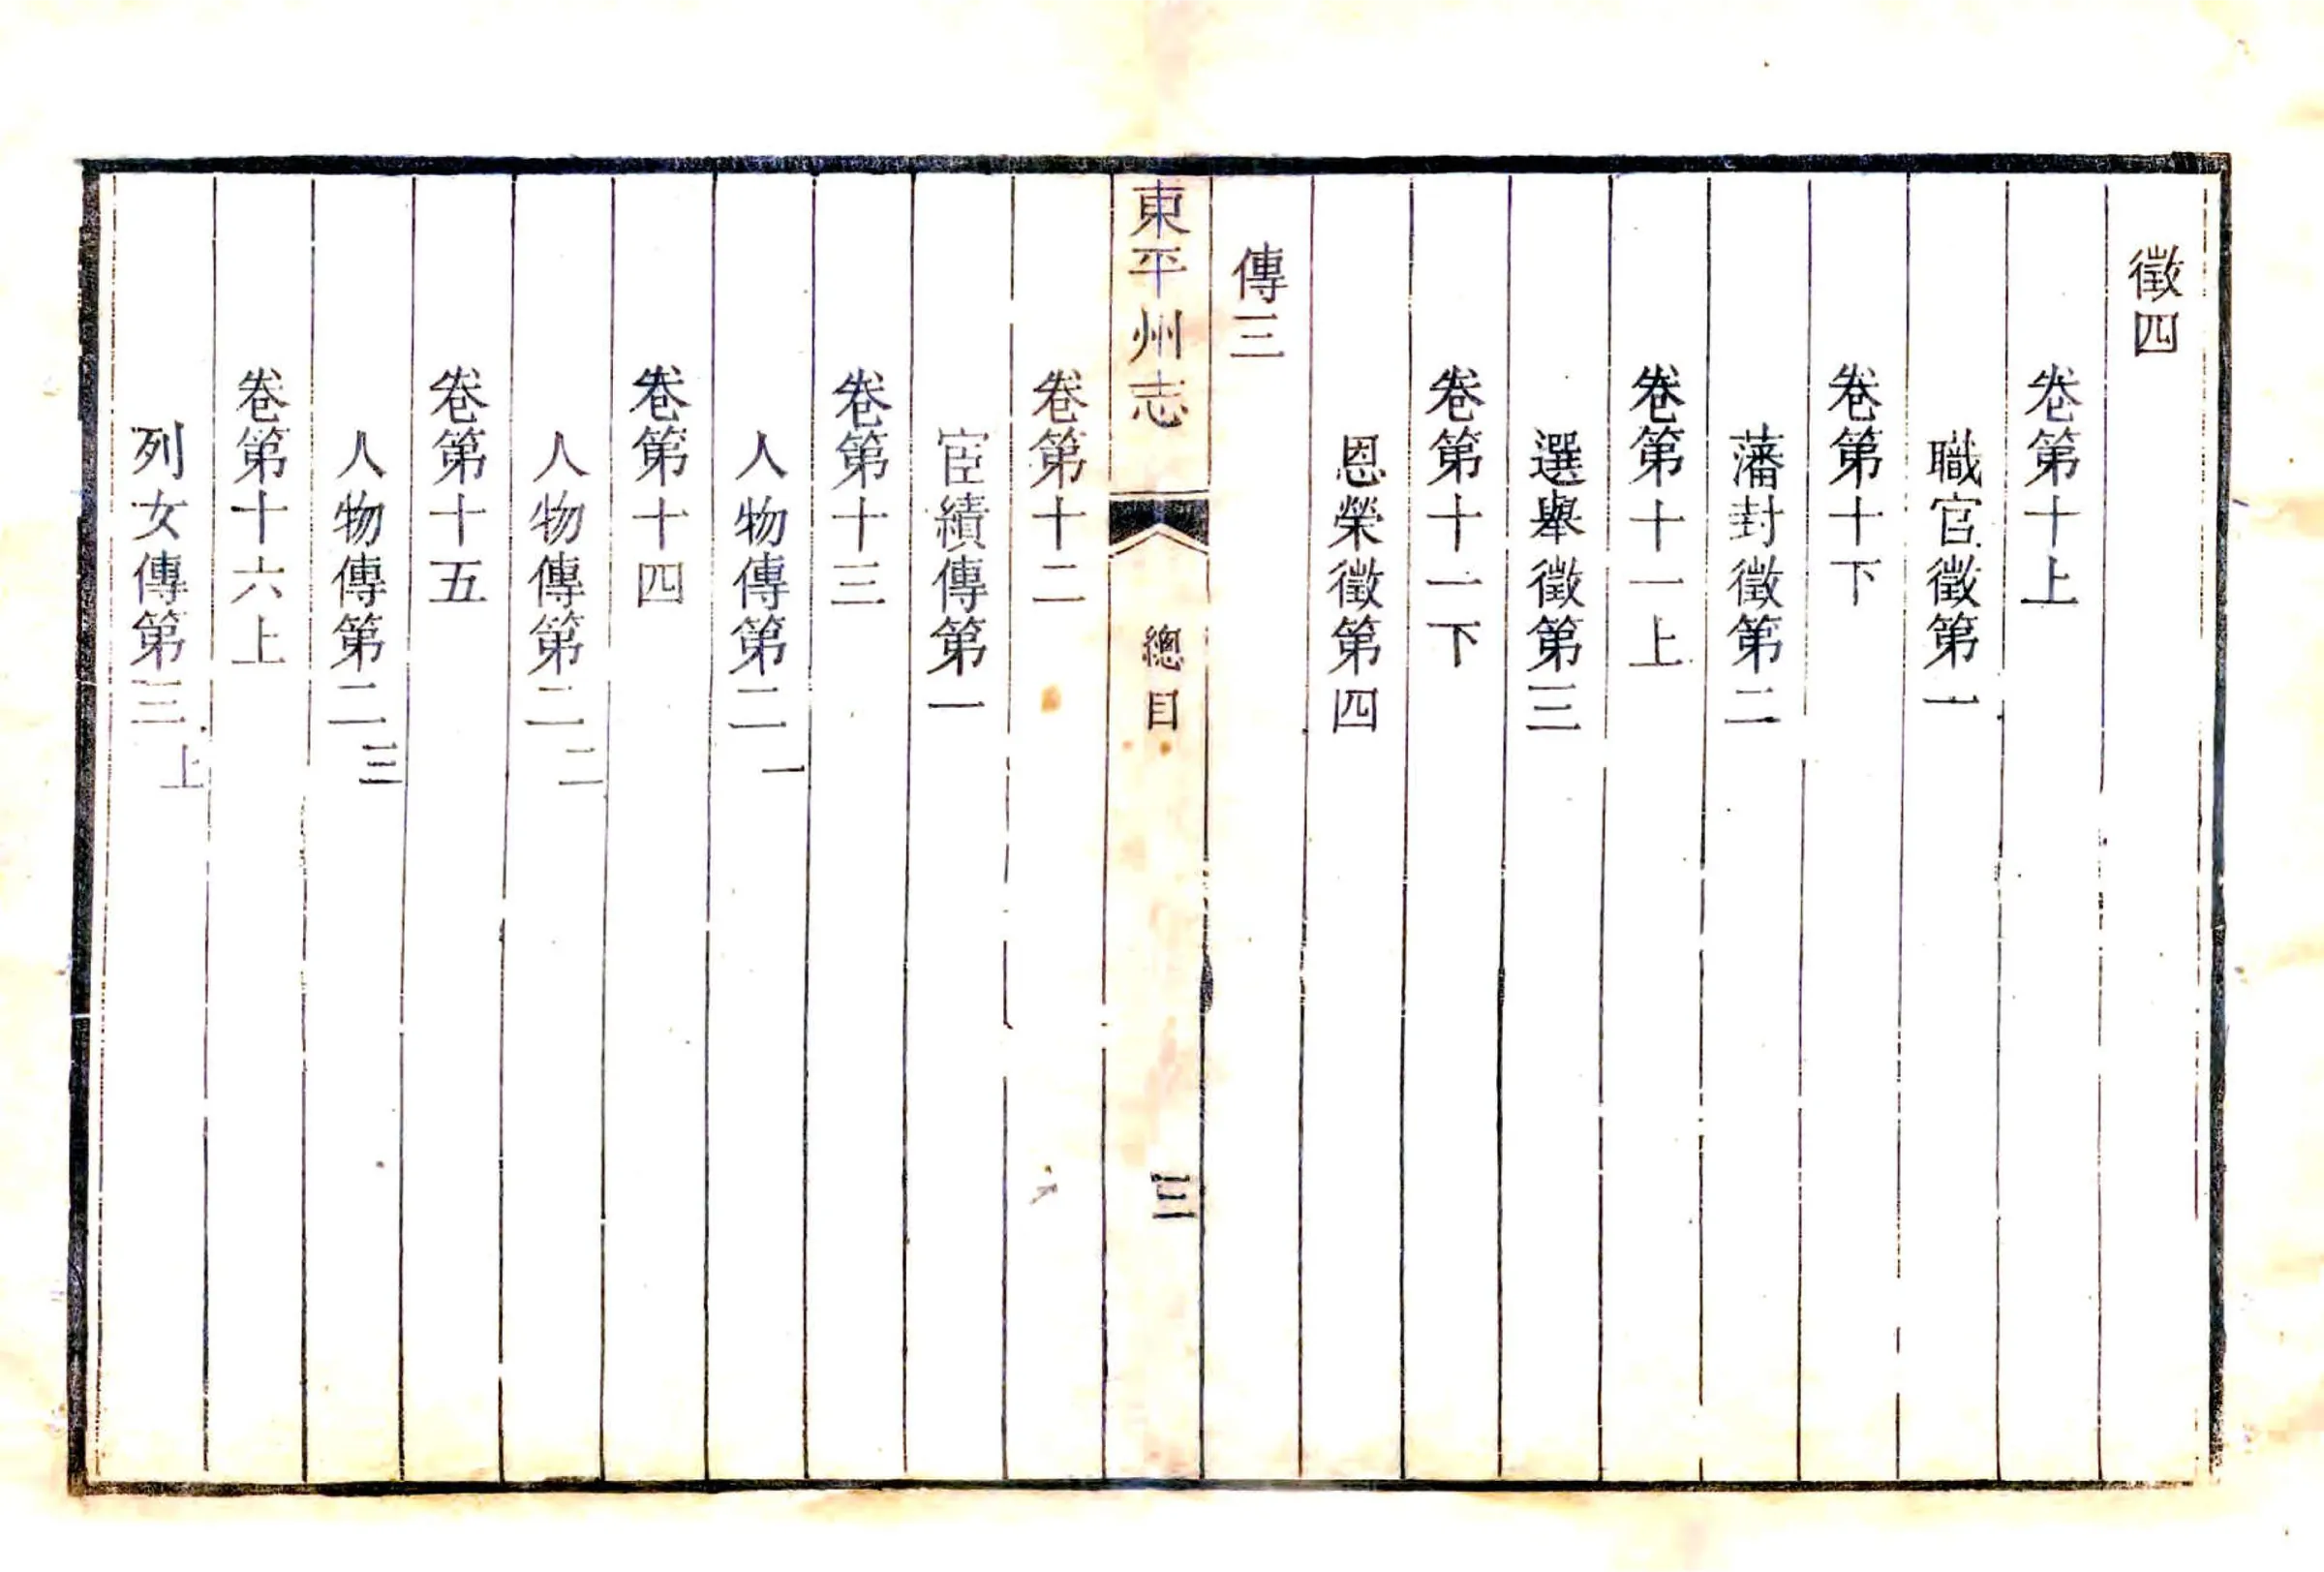 徵四
卷第十上
職官徵第一
卷第十下
藩封徵第二
卷第十一上
選舉徵第三
卷第十一下
恩榮徵第四
傳三
東平州志
總目
三
卷第十二
宦績傳第一
卷第十三
人物傳第二一
卷第十四
人物傳第二二
卷第十五
人物傳第二三
卷第十六上
列女傳第三上